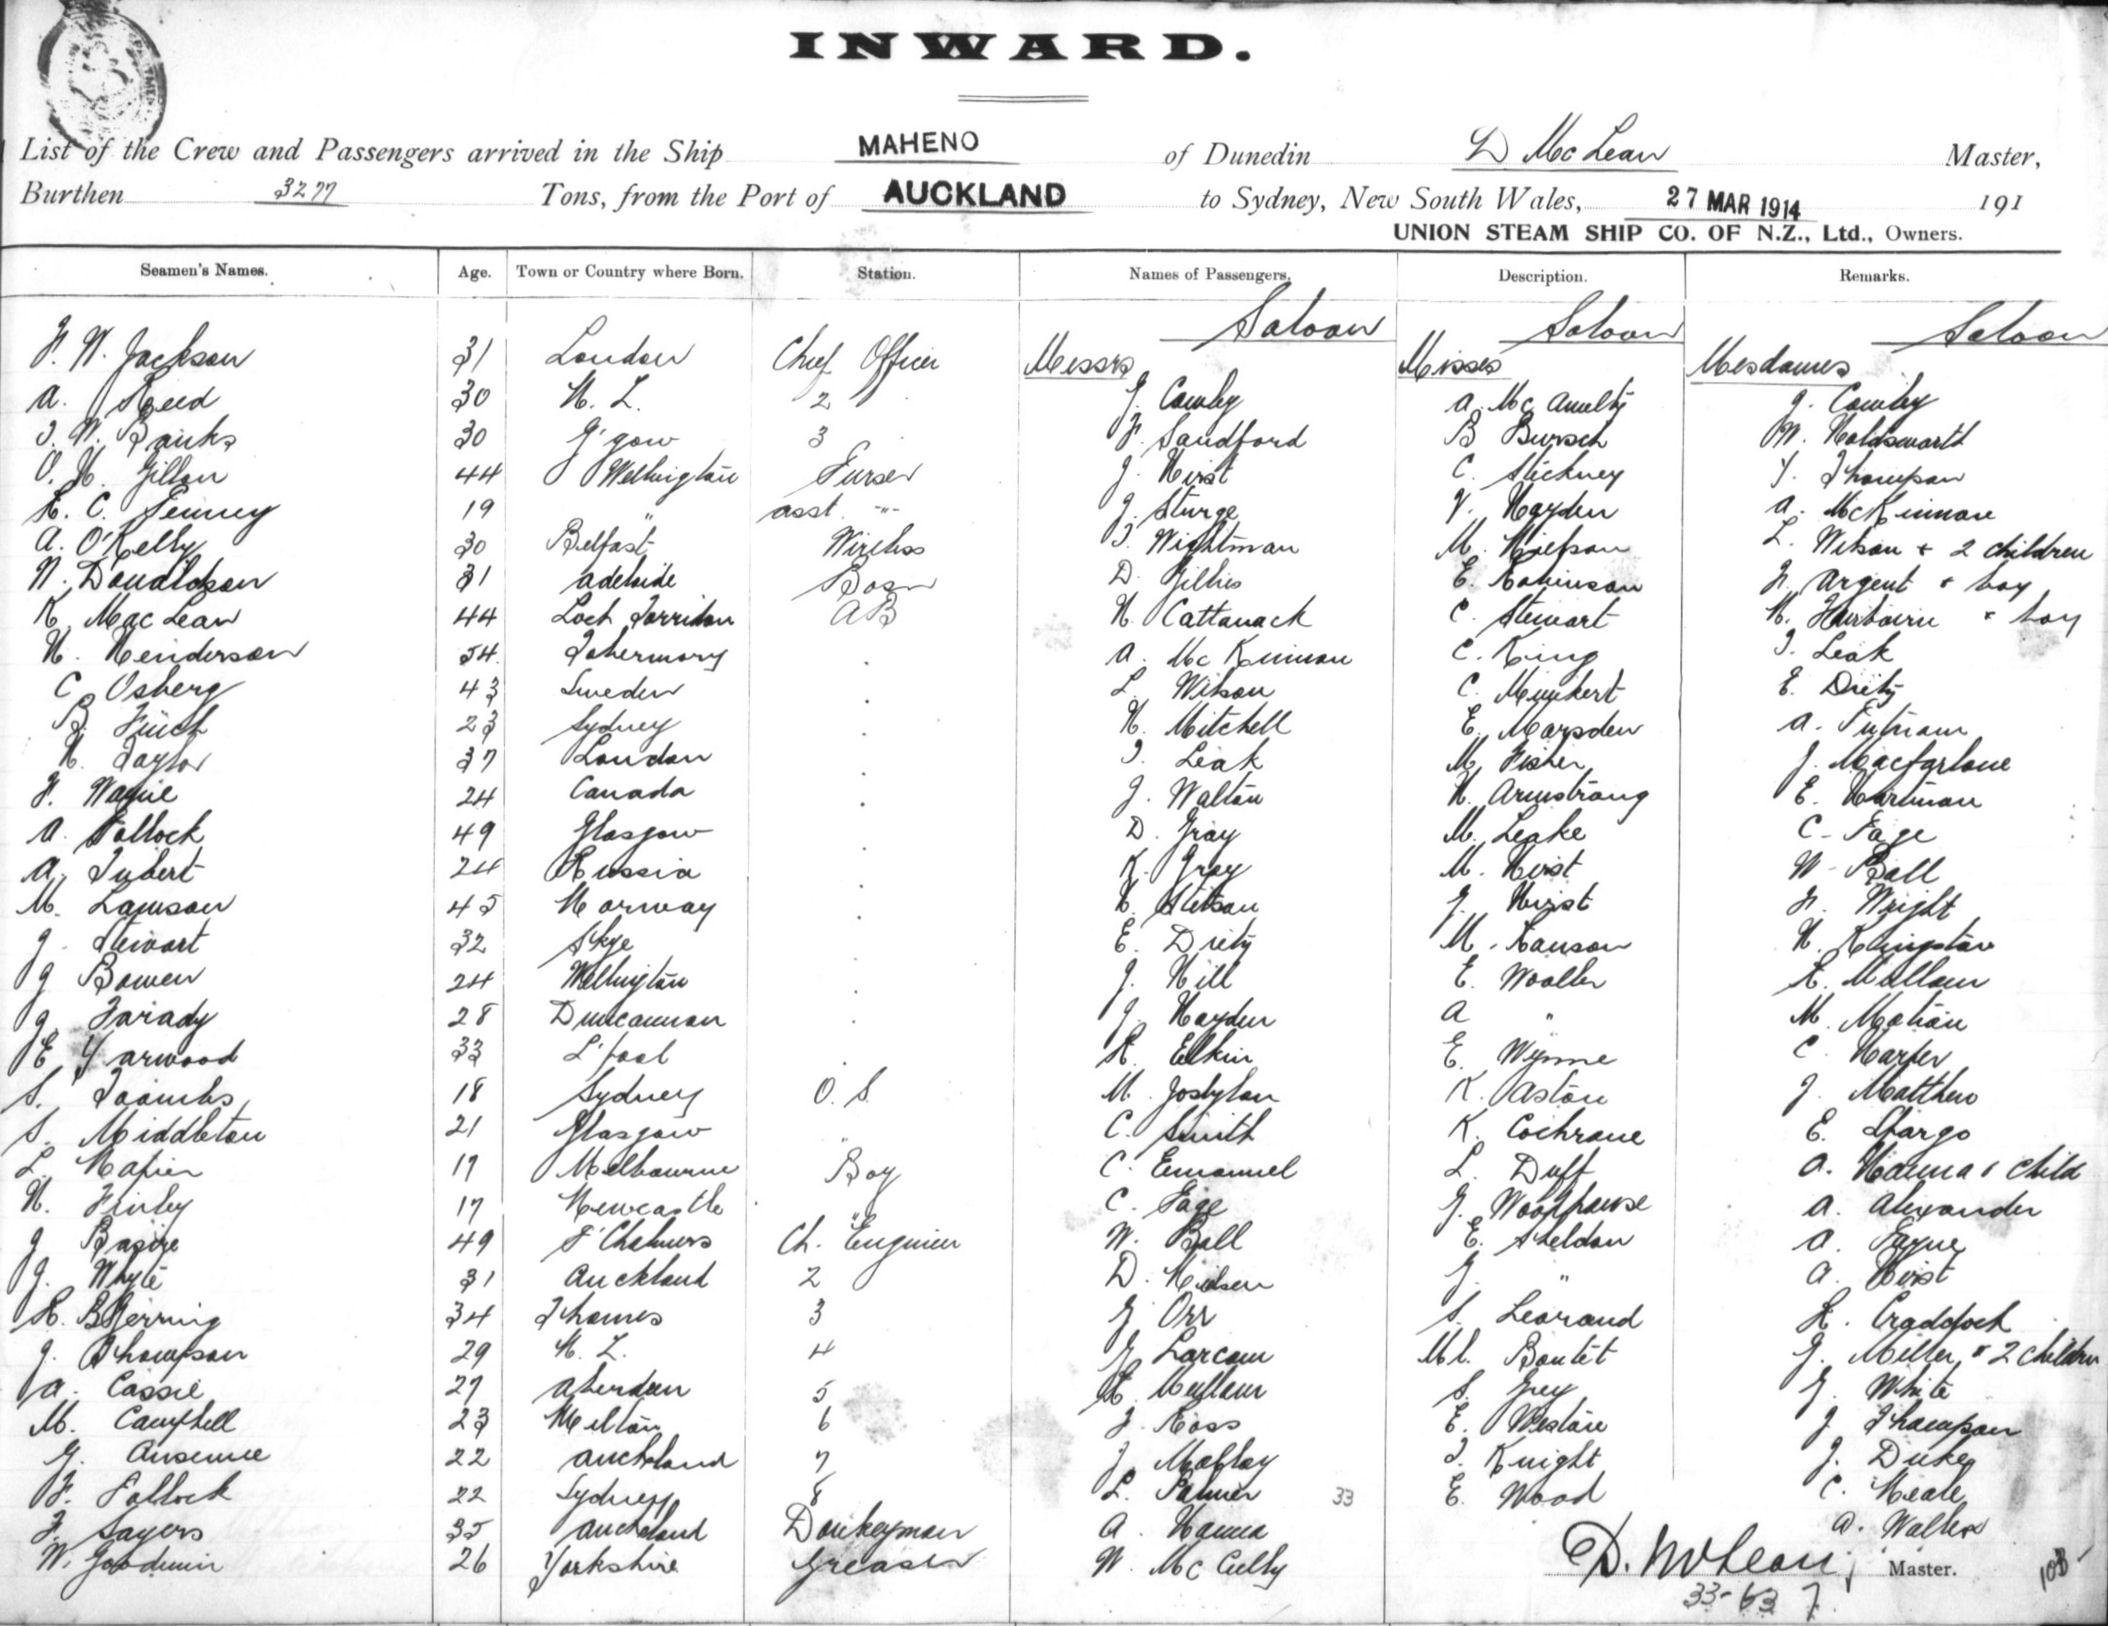 INWARD.
List of the Crew and Passengers arrived in the Ship MAHENO of Dunedin D McLean Master,
Burthen 3277 Tons, from the Port of AUCKLAND to Sydney, New South Wales, 27 MAR 1914 191
UNION STEAM SHIP CO. OF N.Z., Ltd., Owners.
Seamen's Names. Age. Town or Country where Born. Station. Names of Passengers. Description. Remarks.
Saloon Saloon Saloon
F. W. Jackson 31 London Chief Officer Messrs Misses Mesdames
A. Reed 30 N. Z. 2 J. Cowley A. McAnulty J. Cowley
J. W. Banks 30 G'gow 3 F. Sandford B Bursch W. Holdsworth
V. H. Gillon 44 Wellington Purser J. Hirst C. Stickney Y. Thompson
R. C. Penney 19 " asst. -"- J. Sturge V. Hayden A. McKinnon
A. O'Kelly 30 Belfast Wireless T. Wightman M. L. Wilson & 2 children
N. Donaldson 31 Adelaide Bosn D. Gillies E. Robinson F. Argent & boy
K. MacLean 44 Loch Torridon AB N. Cattanach C. Stewart H. Fairbairn & boy
H. Henderson 54 Tobermory . A. McKinnon C. King T. Leak
C. Osberg 43 Sweden . L. Wilson C. E. Dietz
B. Finch 23 Sydney . H. Mitchell E. Marsden A. Putnam
H. Taylor 37 London . T. Leak M. Fisher J. Macfarlane
F. Wayne 24 Canada . J. Walton H. Armstrong E. Hartman
A. Pollock 49 Glasgow . D. Gray M. Leake C. Page
A. Tubert 24 Russia . K. Gray M. Hirst W. Ball
M. Lawson 45 Norway . H. Stetson J. Hirst F. Wright
J. Stewart 32 Skye . E. Dietz M. Ranson H. Kingston
J. Bowen 24 Wellington . J. Hill E. Wooller R. Mellam
J. Farady 28 Duncannon . J. Hayden A " M. Motion
E. Yarwood 33 L'pool . R. Elkin E. Wynne C. Harper
S. Toombs 18 Sydney O. S. M. K. Aston J. Matthew
S. Middleton 21 Glasgow " C. Smith K. Cochrane E. Spargo
L. Napier 17 Melbourne Boy C. Emanuel L. Duff A. Hanna & child
H. Finlay 17 Newcastle " C. Page G. Woodhouse A. Alexander
J. Basire 49 P'Chalmers Ch. Engineer W. Ball E. Sheldon A. Payne
J. Whyte 31 Auckland 2 D. Nielsen G. " A. Hirst
R. B. Gerring 34 Thames 3 G. Orr S. Learand R. Craddock
J. Thompson 29 N. Z. 4 G. Larcom Ml. Boutet G. Miller & 2 children
A. Cassie 27 Aberdeen 5 R. Mellam S. Grey G. White
M. Campbell 23 Milton 6 J. Ross E. Weston J. Thompson
G. Ansenne 22 Auckland 7 J. T. Knight J. Duke
F. Pollock 22 Sydney 8 L. Palmer 33 E. Wood C. Neale
F. Sayers 35 Auckland Donkeyman A. Hanna A. Walker
W. Goodwin 26 Yorkshire Greaser W. McCully D. McLean, Master. 108
33-63 7